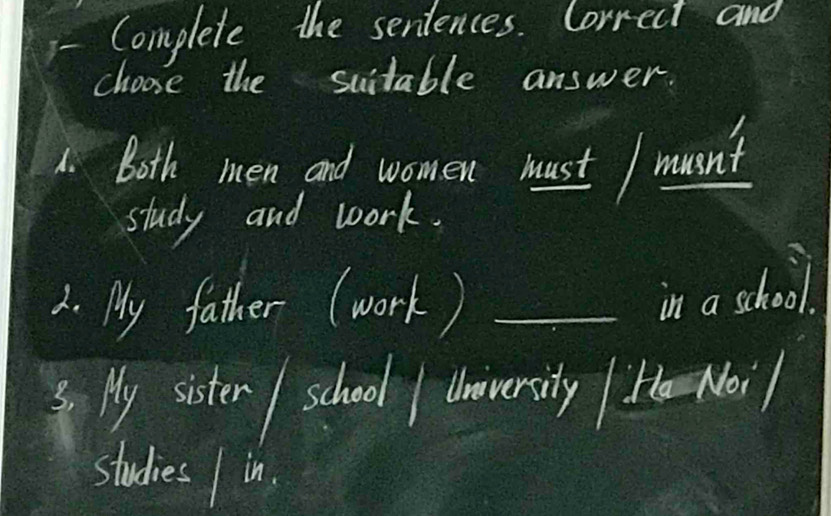 - Complete the sentences. Correct and
choose the suitable answer.
1. Both men and women must / musn't
study and work.
2. My father (work) ______ in a school.
3. My sister / school / University / Ha Noi /
studies / in.